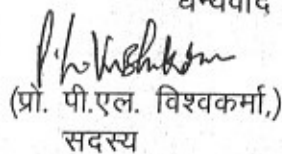 धन्यवाद
(प्रो. पी.एल. विश्वकर्मा,)
सदस्य